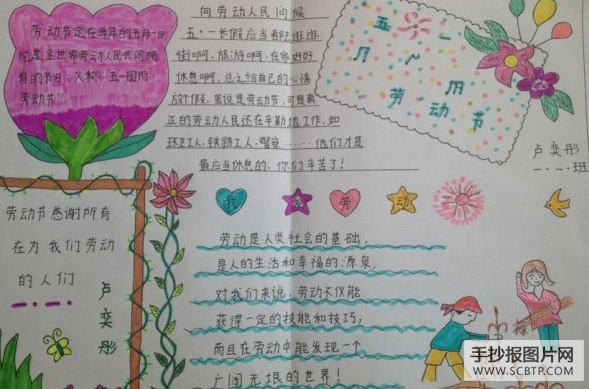 劳动节定在每年的五月一日
它是全世界劳动人民共同拥
有的节日，又称“五一国际
劳动节”
向劳动人民问候
五·一长假应当看陆逛逛
街啊，旅游啊，在家好好
休息啊，总之给自己的心情
放个假，虽说是劳动节，可是真
正的劳动人民还在辛勤地工作，如
环卫工人，铁路工人，警察……，他们才是
最应当休息的，你们辛苦了！
五一
劳动节
卢奕彤
一·一·班
劳动节感谢所有
在为我们劳动
的人们
一·一·
卢奕彤
我爱劳动
劳动是人类社会的基础，
是人的生活和幸福的源泉，
对我们来说，劳动不仅能
获得一定的技能和技巧，
而且在劳动中能发现一个
广阔无垠的世界！
手抄报图片网
WWW.SCBTP.COM